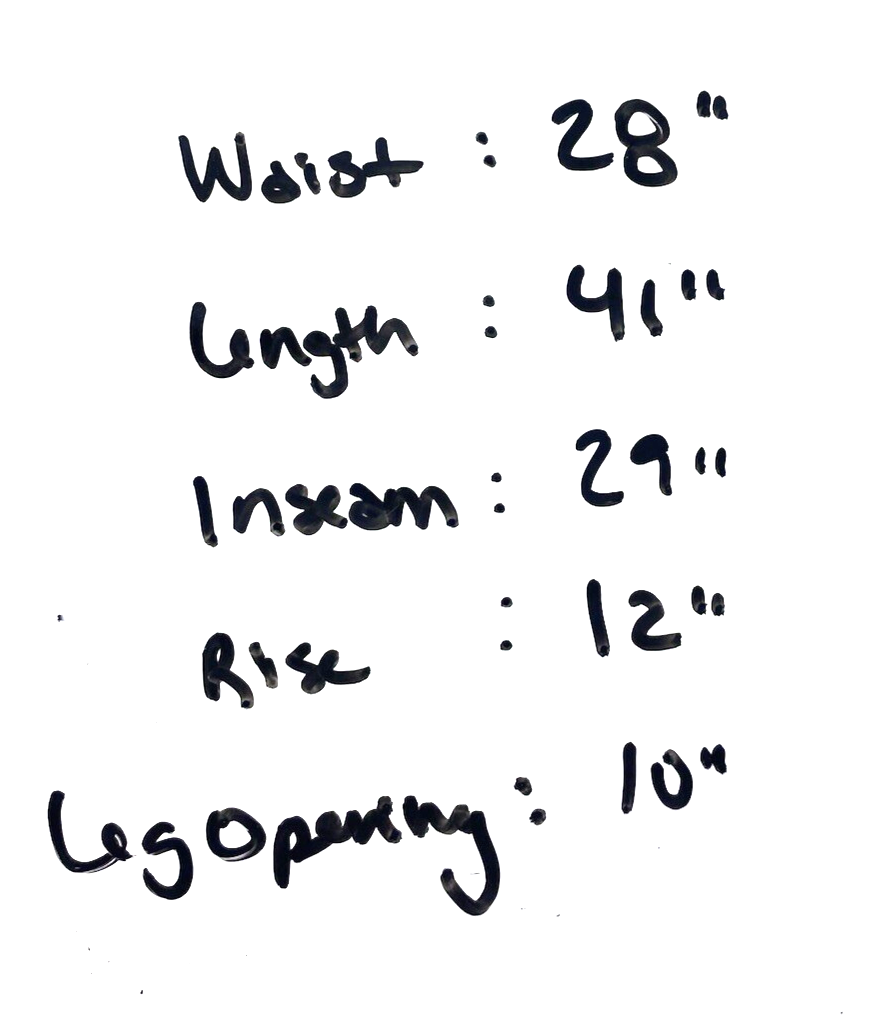 Waist : 28"
Length : 41"
Inseam : 29"
Rise : 12"
Leg Opening : 10"